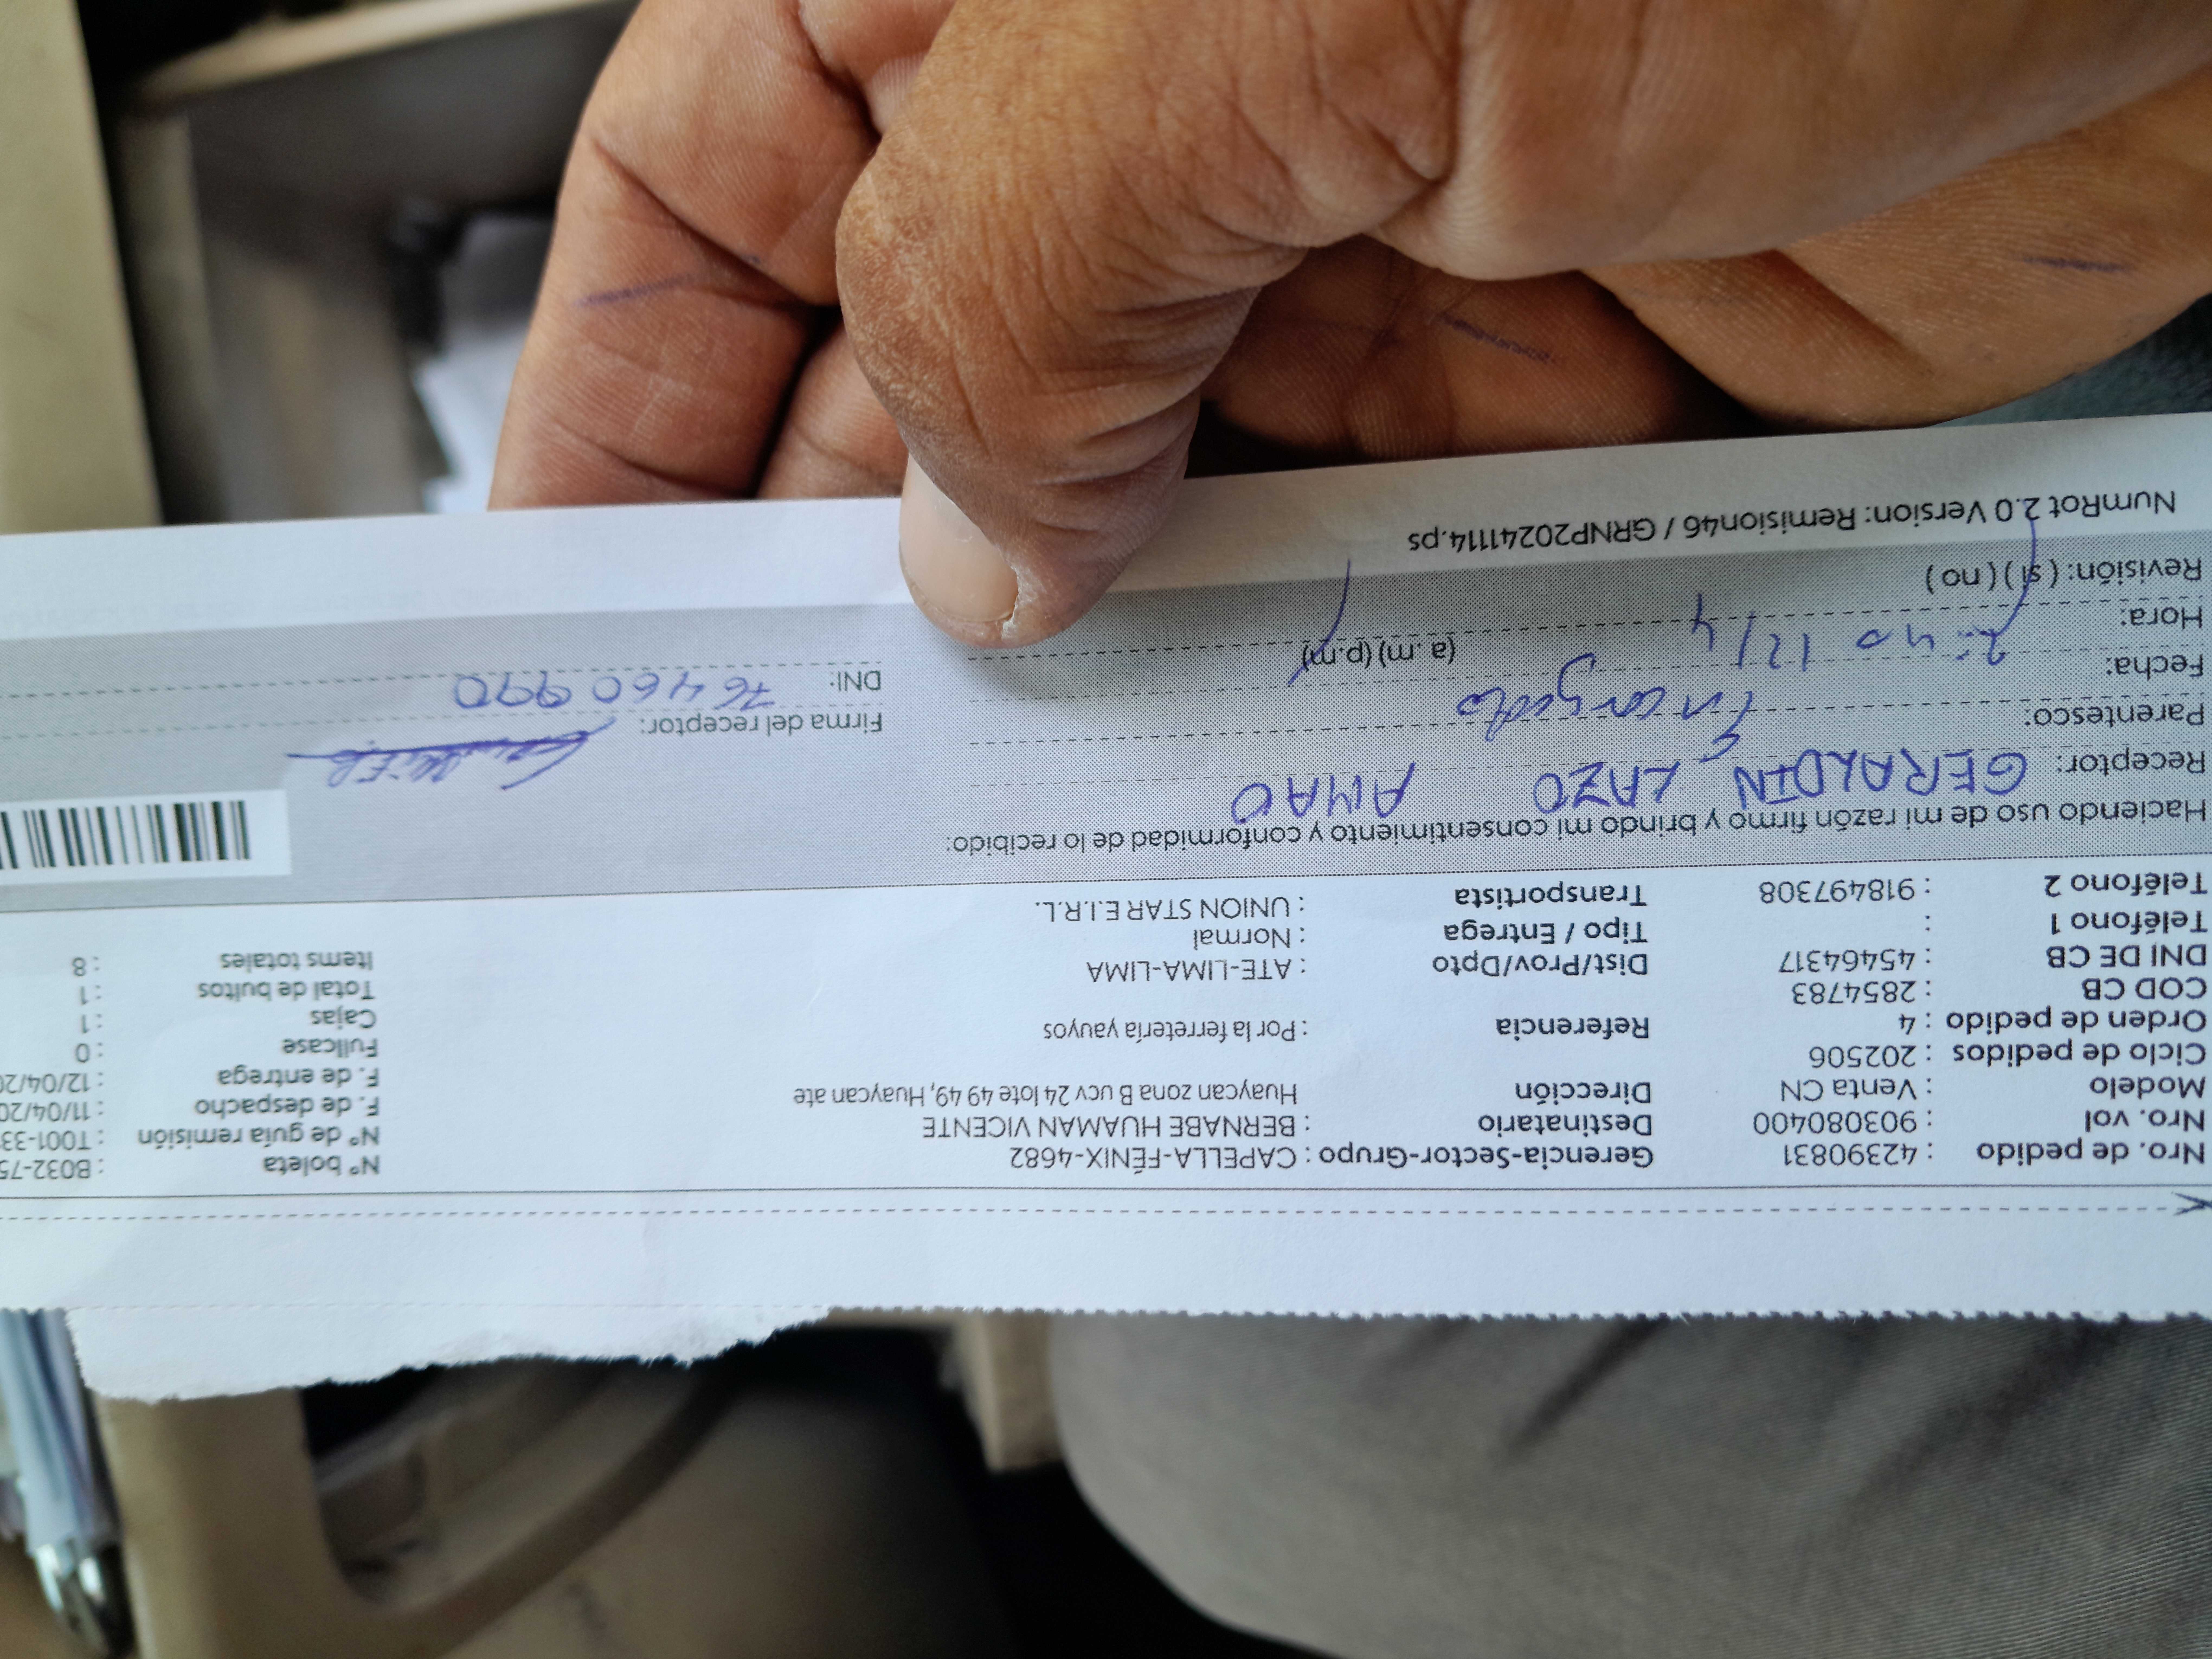 Nro. de pedido : 42390831 Gerencia-Sector-Grupo : CAPELLA-FÉNIX-4682 Nº boleta : B032-75
Nro. vol : 903080400 Destinatario : BERNABE HUAMAN VICENTE Nº de guía remisión : T001-33
Modelo : Venta CN Dirección Huaycan zona B ucv 24 lote 49 49, Huaycan ate F. de despacho : 11/04/20
Ciclo de pedidos : 202506 F. de entrega : 12/04/20
Orden de pedido : 4 Referencia : Por la ferretería yauyos Fullcase : 0
COD CB : 2854783 Cajas : 1
DNI DE CB : 45464317 Dist/Prov/Dpto : ATE-LIMA-LIMA Total de bultos : 1
Teléfono 1 : Tipo / Entrega : Normal Items totales : 8
Teléfono 2 : 918497308 Transportista : UNION STAR E.I.R.L.
Haciendo uso de mi razón firmo y brindo mi consentimiento y conformidad de lo recibido:
Receptor: GERALDIN LAZO AMAO
Parentesco: Encargado Firma del receptor:
Fecha: 2:40 12/4 DNI: 76460990
Hora: (a. m) (p.m)
Revisión: ( si ) ( no )
NumRot 2.0 Version: Remision46 / GRNP20241114.ps